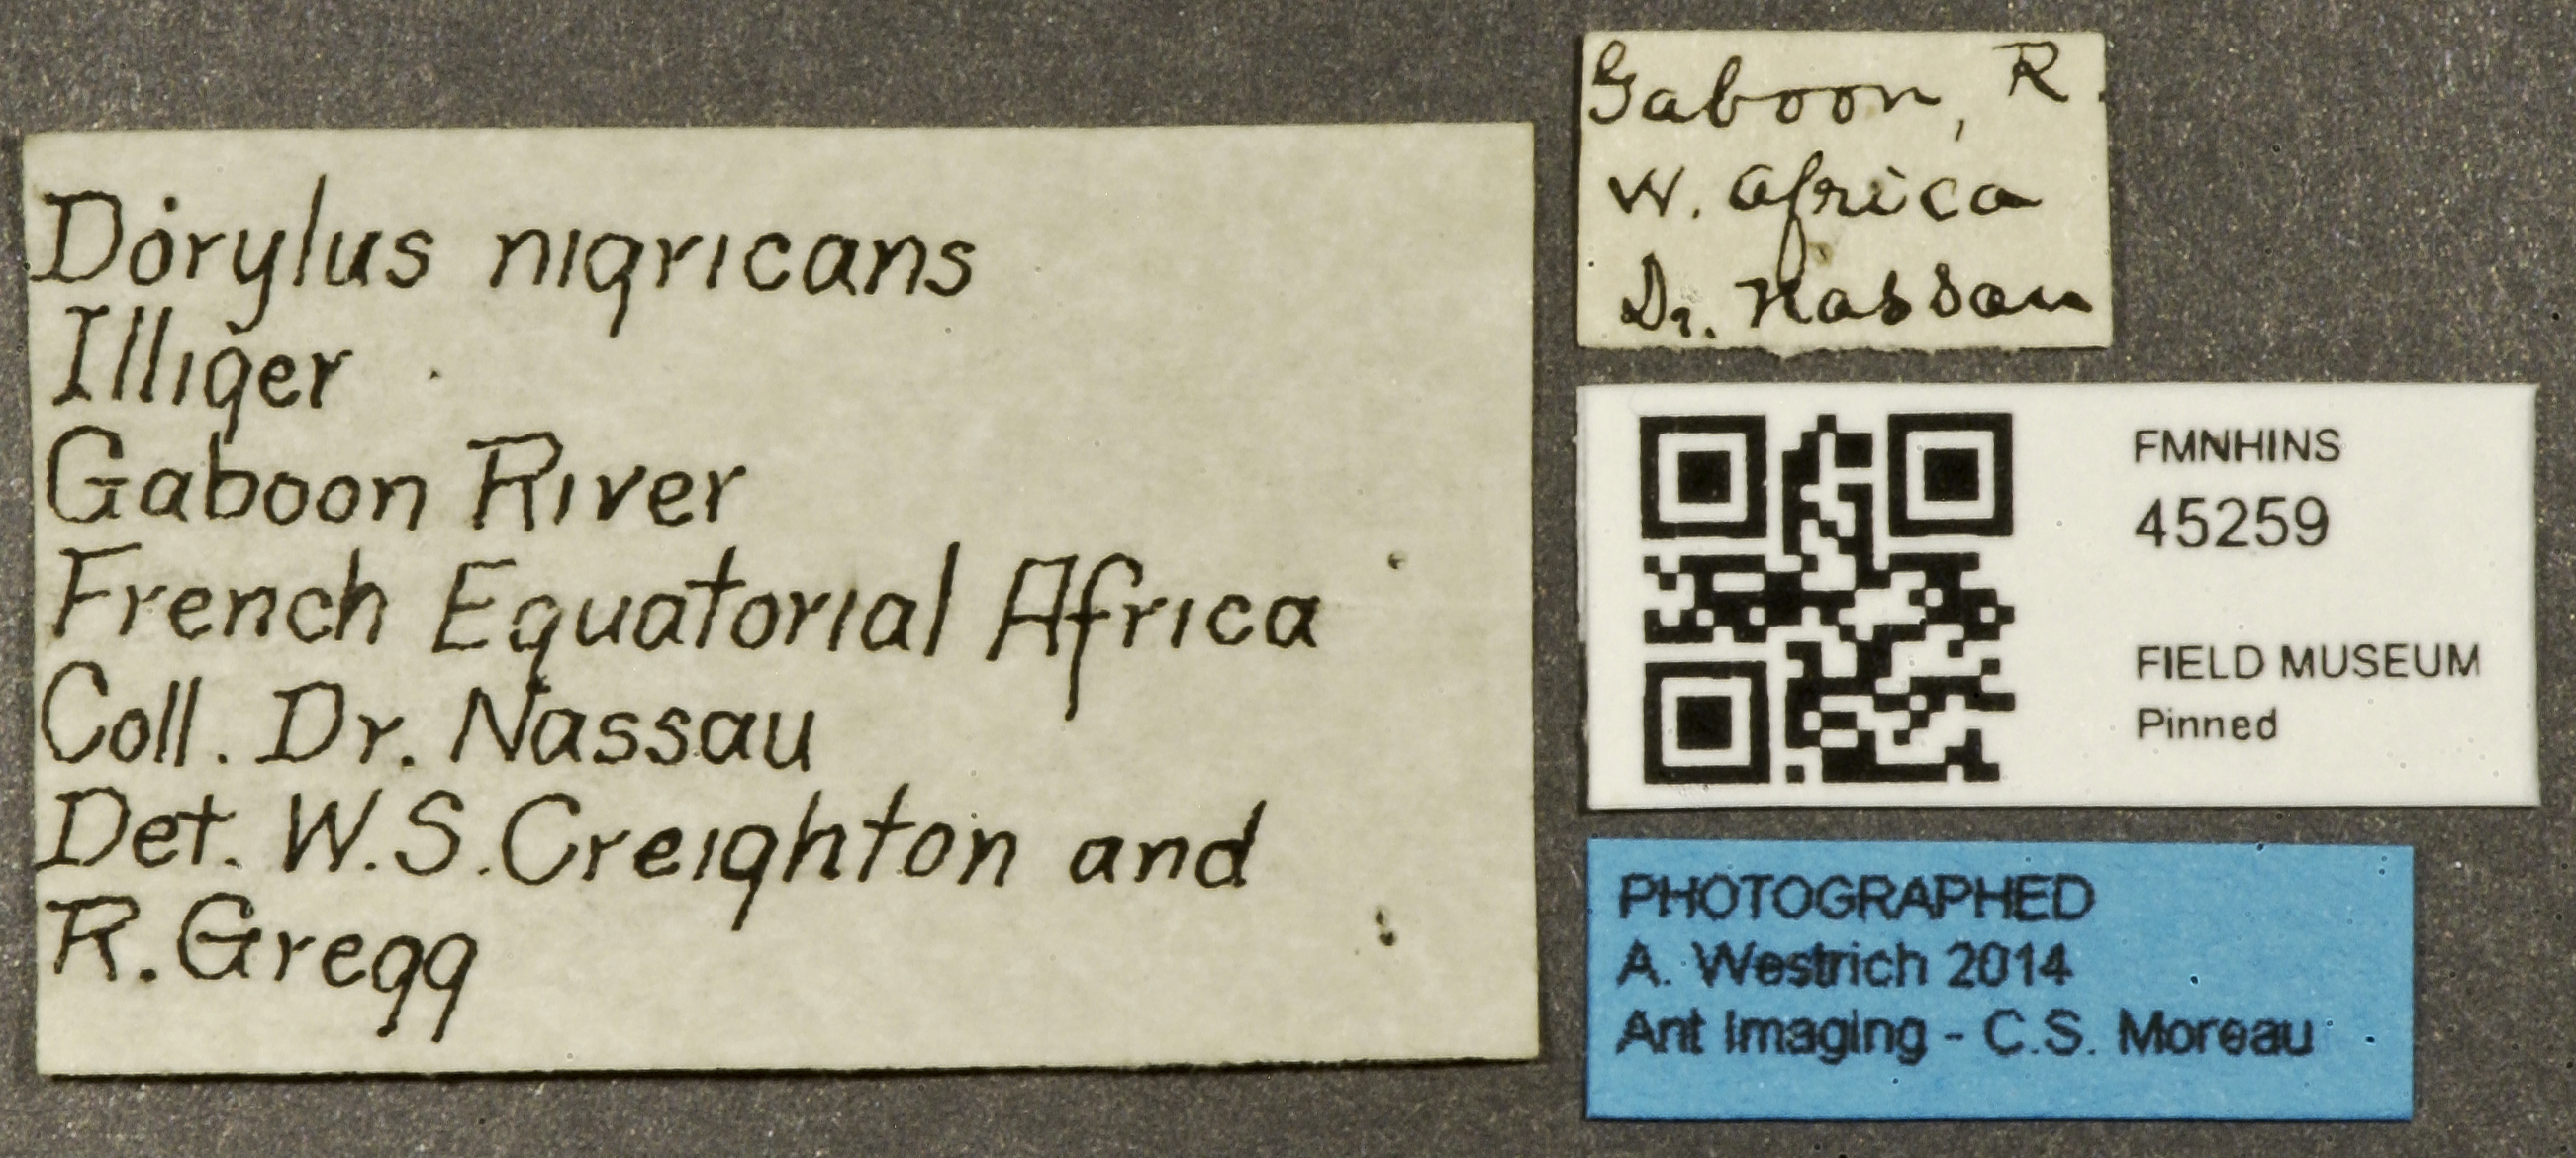 Dorylus nigricans
Illiger
Gaboon River
French Equatorial Africa
Coll. Dr. Nassau
Det. W.S. Creighton and
R. Gregg
Gaboon, R.
W. Africa
Dr. Nassau
FMNHINS
45259
FIELD MUSEUM
Pinned
PHOTOGRAPHED
A. Westrich 2014
Ant Imaging - C.S. Moreau